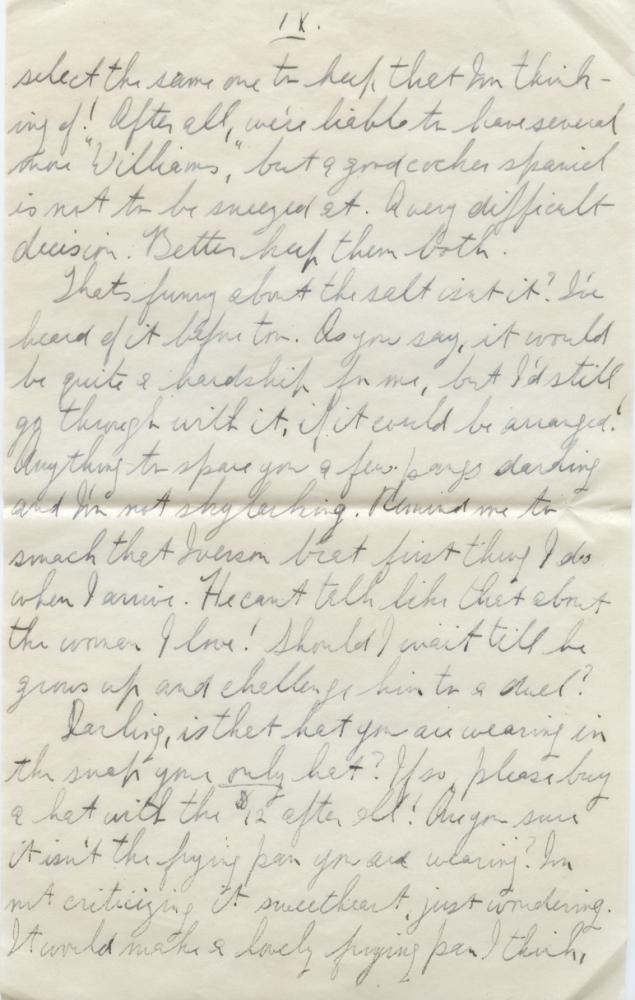 IX.
select the same one to keep that I'm think-
ing of! After all, we're liable to have several
more "Williams," but a good cocker spaniel
is not to be sneezed at. A very difficult
decision. Better keep them both.
Thats funny about the salt isn't it? I've
heard of it before too. As you say, it would
be quite a hardship for me, but I'd still
go through with it, if it could be arranged!
Anything to spare you a few pangs darling
and I'm not skylarking. Remind me to
smack that Iverson brat first thing I do
when I arrive. He can't talk like that about
the woman I love! Should I wait till he
grows up and challenge him to a duel?
Darling, is that hat you are wearing in
the snap your only hat? If so, please buy
a hat with the $12 after all! Are you sure
it isn't the frying pan you are wearing? I'm
not criticizing it sweetheart, just wondering.
It would make a lovely frying pan I think,